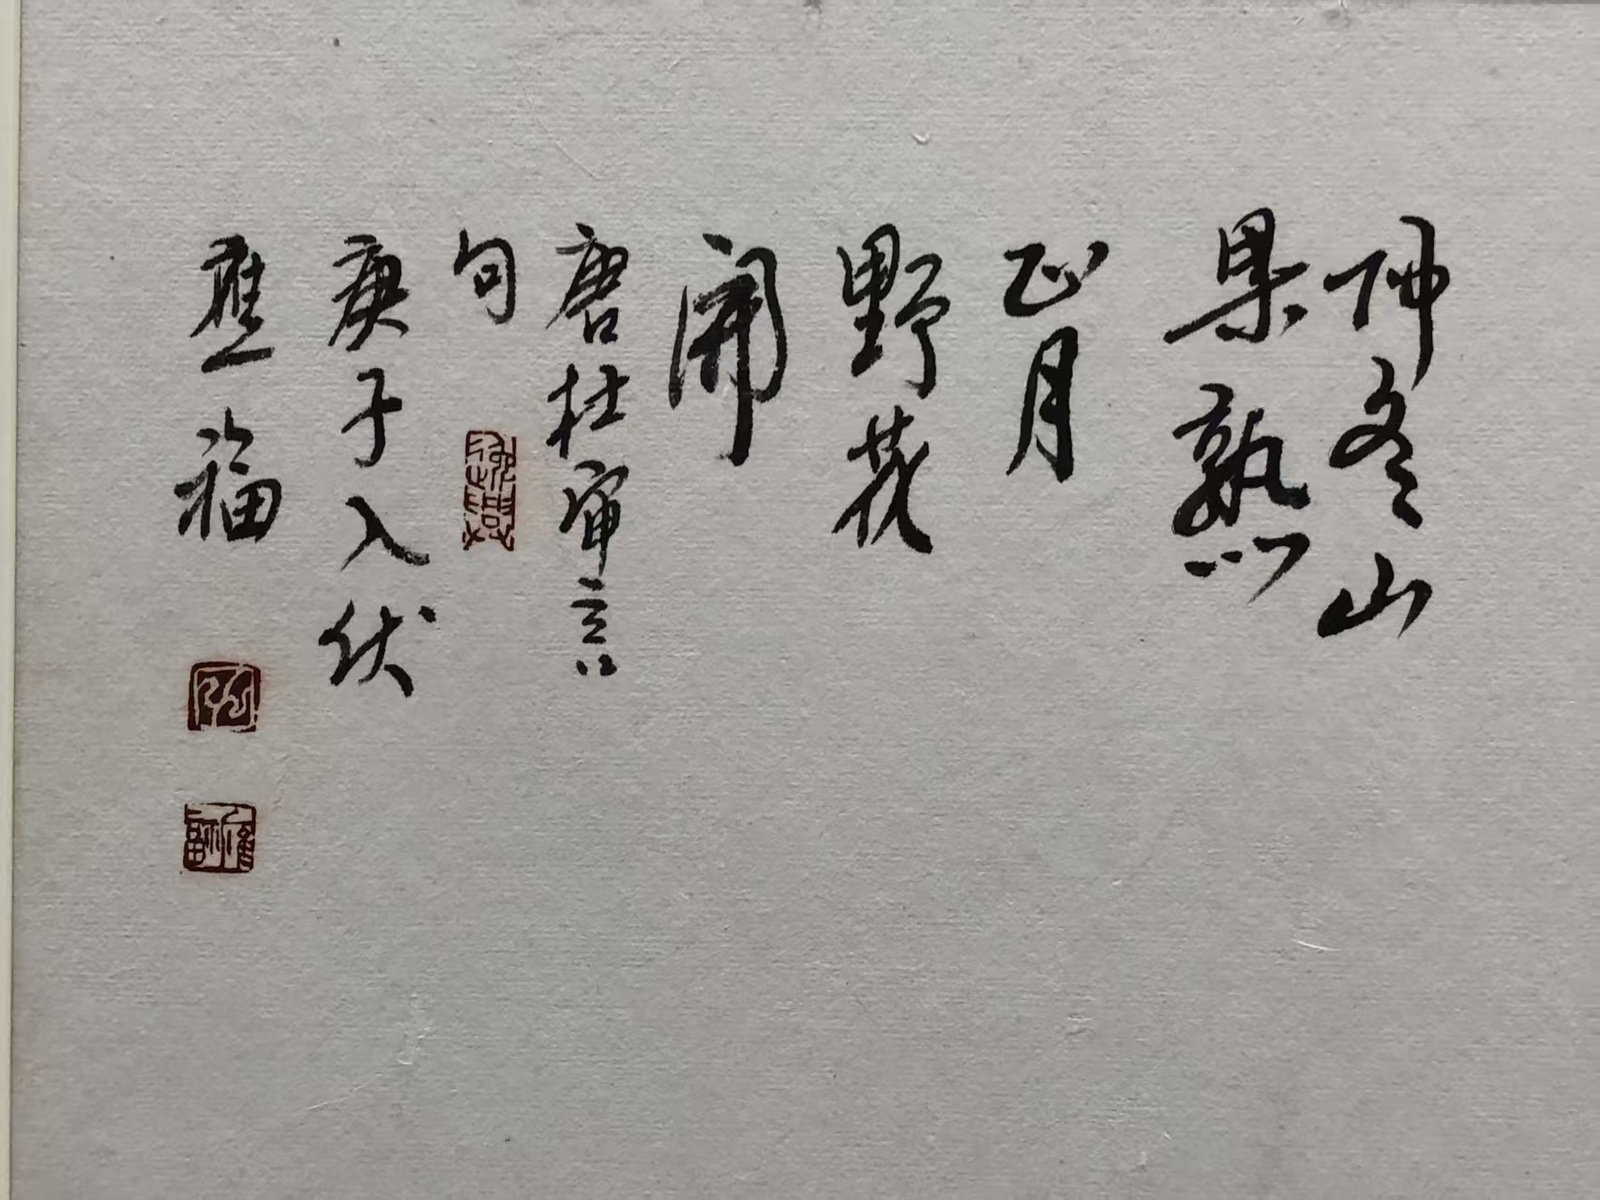 仲冬山
果熟
正月
野花
開
唐杜審言
句
庚子入伏
應福